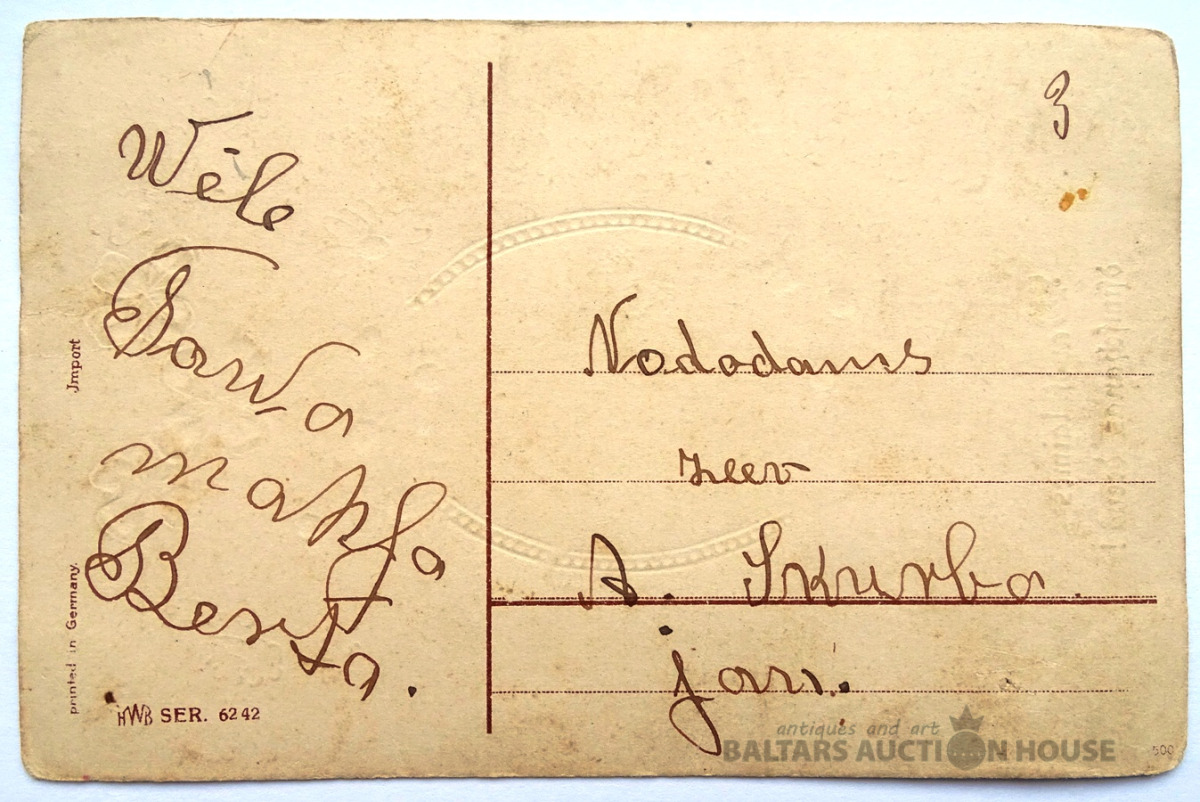 Wēle
Tawa
makfa
Berta.
Jmport
printed in Germany.
HWB SER. 6242
3
Nododams
zeen
A. Skurba.
jan.
antiques and art
BALTARS AUCTION HOUSE
500